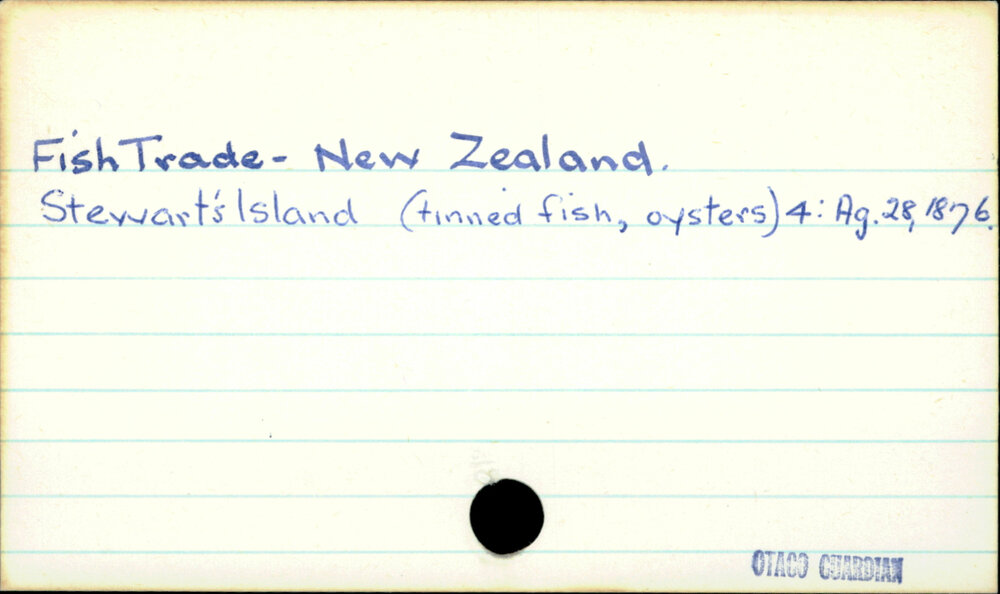 Fish Trade - New Zealand.
Stewart's Island (tinned fish, oysters) 4: Ag. 28, 1876.
OTAGO GUARDIAN